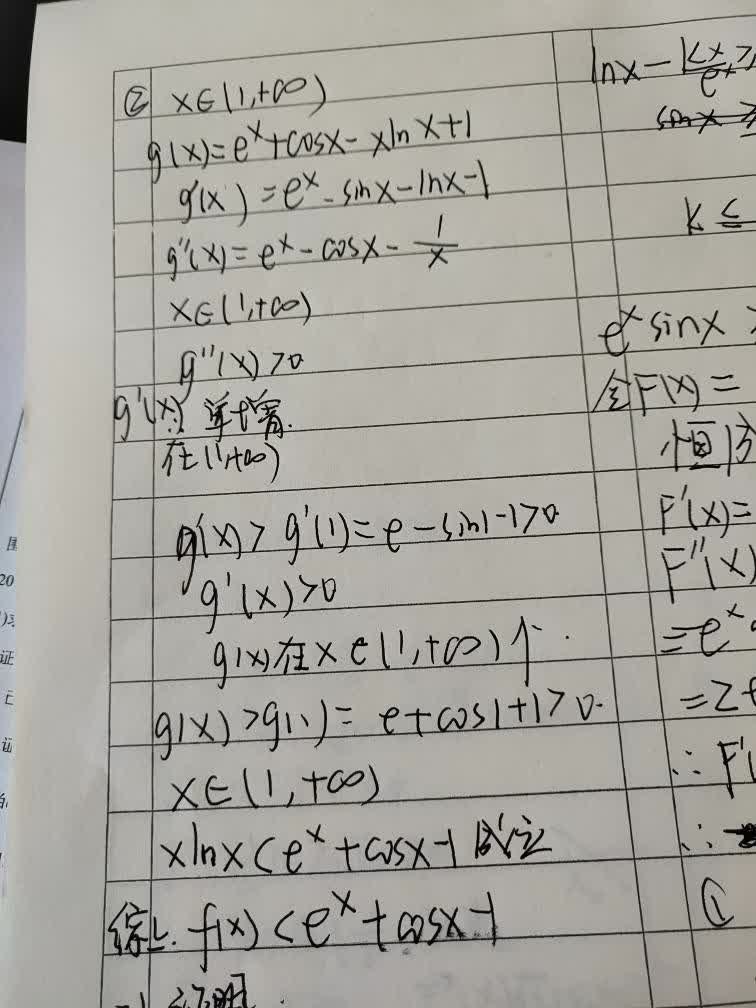 ② x∈(1,+∞)
g(x)=e^x+cosx-xlnx+1
g'(x)=e^x-sinx-lnx-1
g''(x)=e^x-cosx-1/x
x∈(1,+∞)
g''(x)>0
g'(x)单增
在(1,+∞)
g'(x)>g'(1)=e-sin1-1>0
g'(x)>0
g(x)在x∈(1,+∞)↑.
g(x)>g(1)=e+cos1+1>0.
x∈(1,+∞)
xlnx<e^x+cosx-1成立
综上.f(x)<e^x+cosx-1
lnx-
sinx
k≤
e^x sinx>
令F(x)=
恒
F'(x)=
F''(x)
=e^x
=2
∴F'(
∴
①